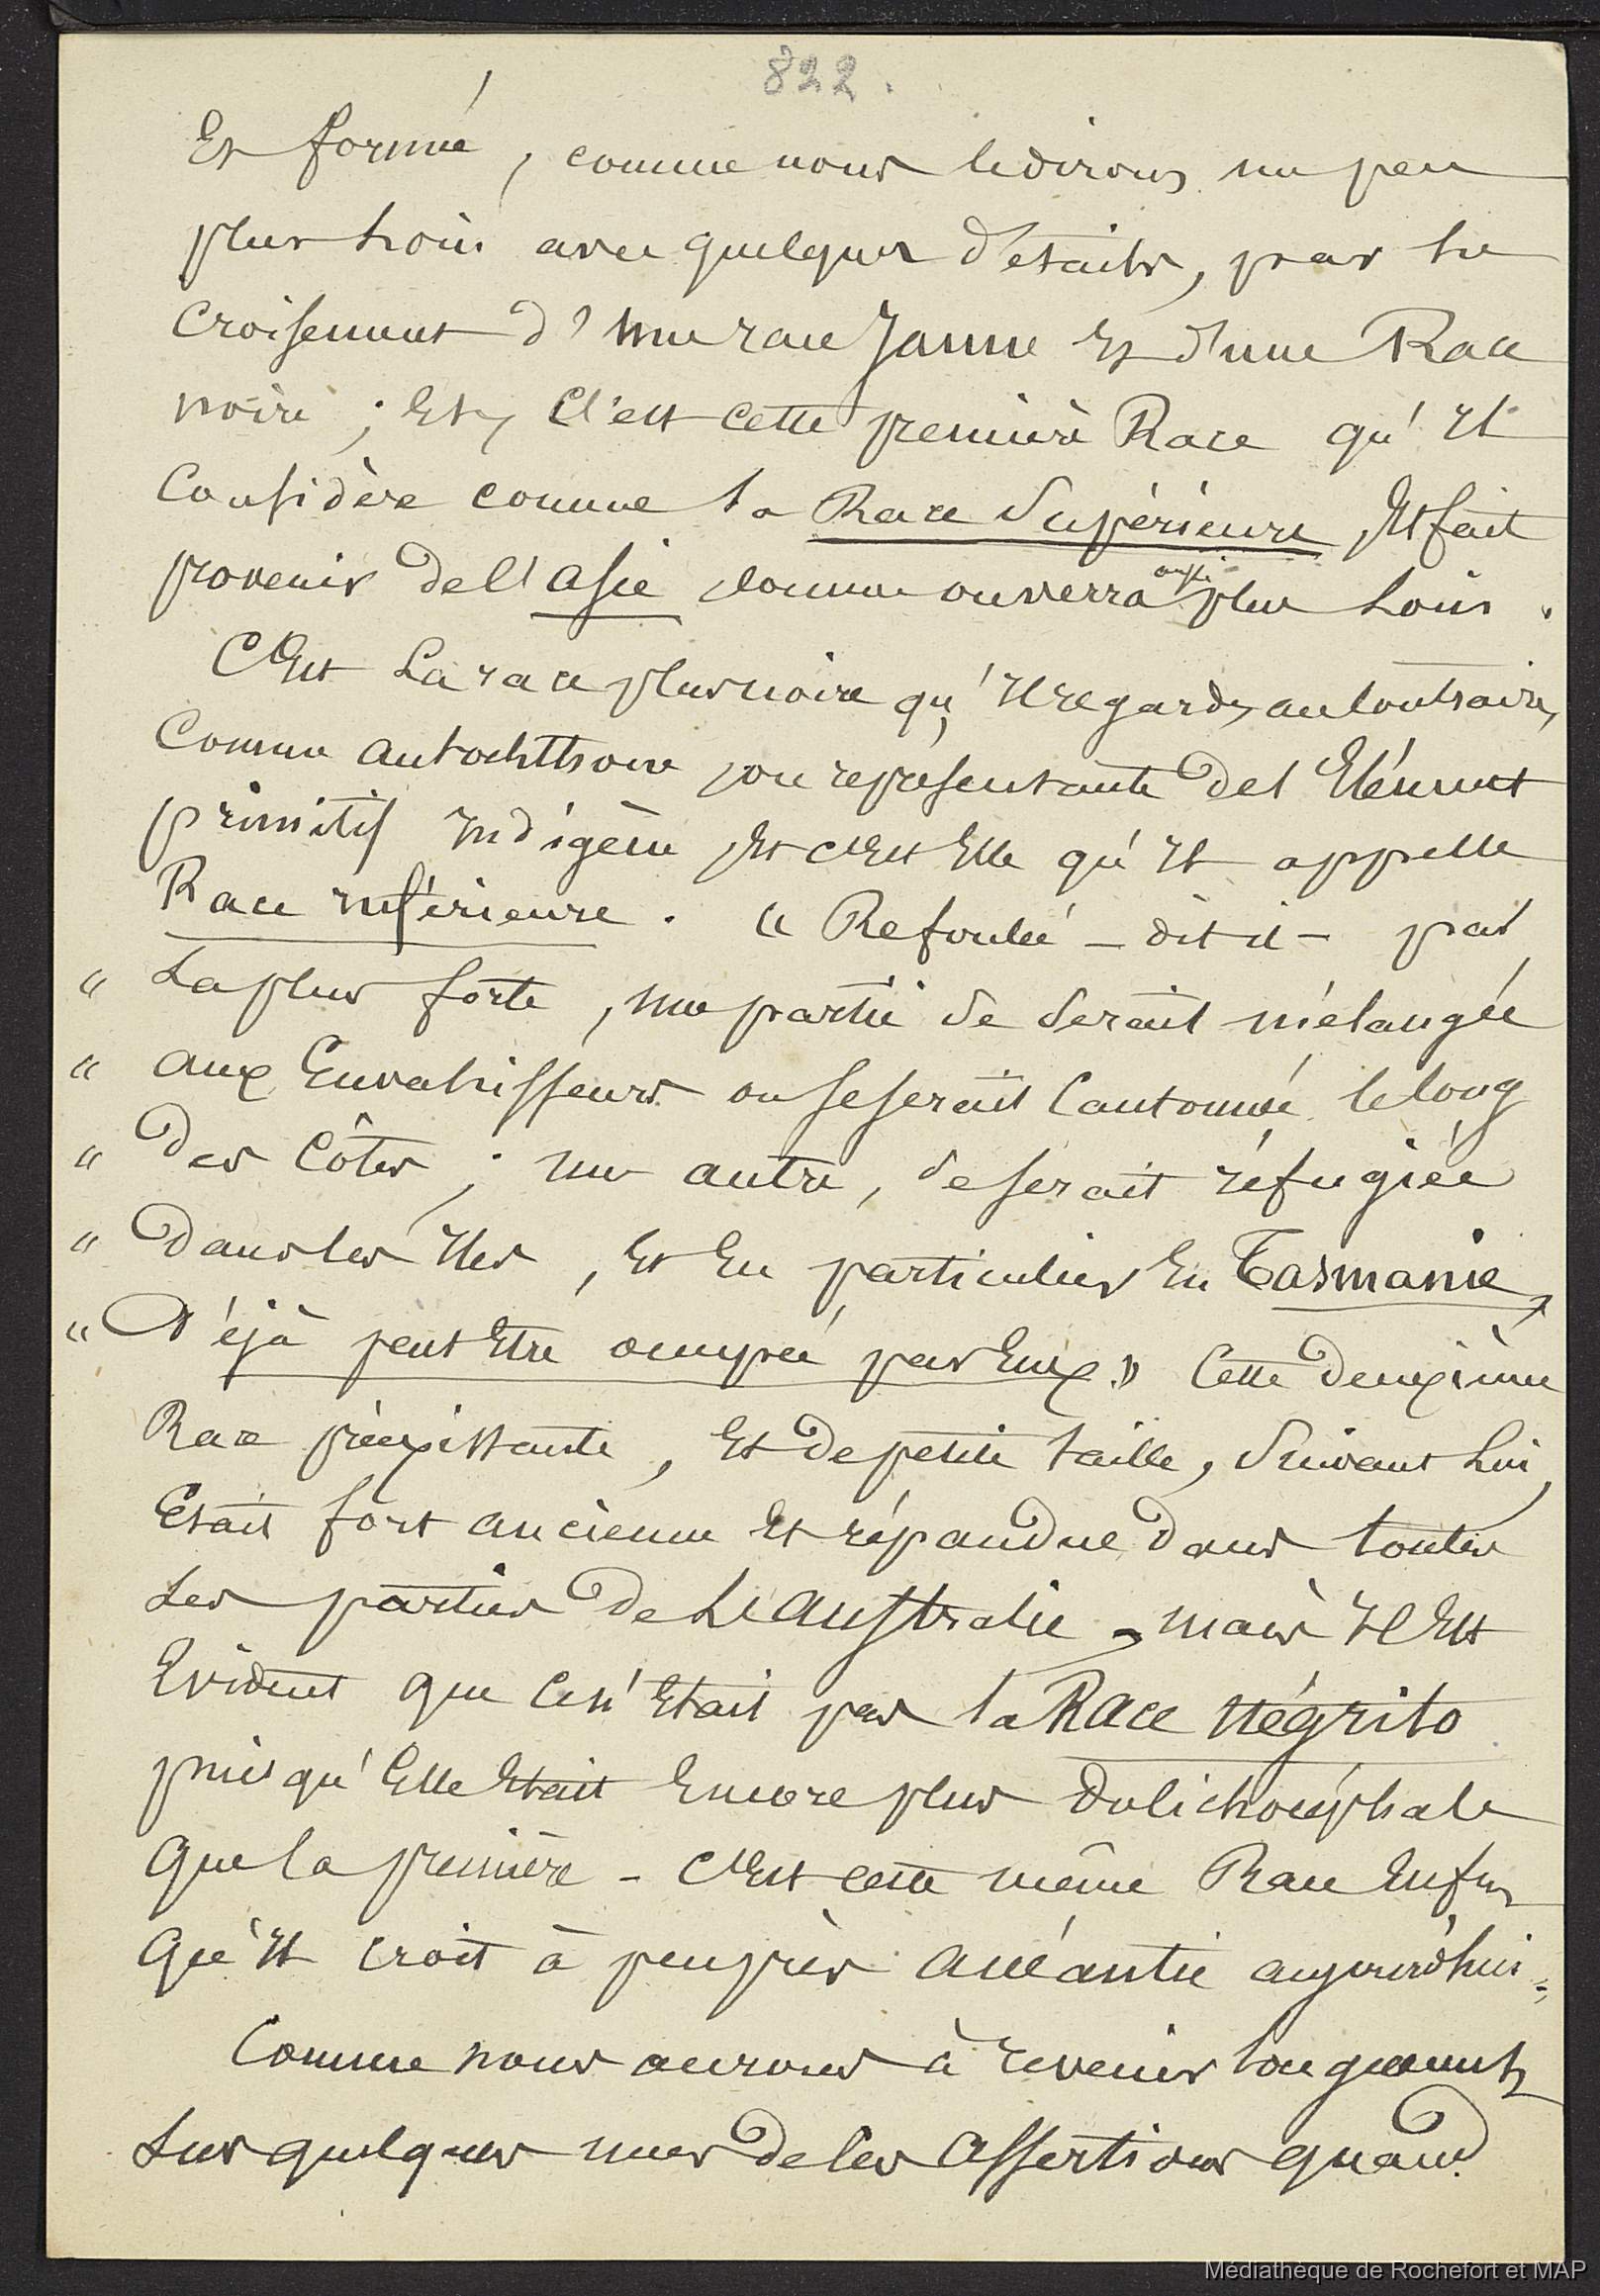 822.
Et formé, comme nous le dirons un peu
plus Loin avec quelques détails, par le
Croisement d'une race Jaune Et d'une Race
noire ; Et, C'est cette première Race qu'Il
Considère comme la Race Supérieure, Et fait
provenir de l'Asie, comme on verra aussi plus Loin.
C'Est La race plus noire qu'Il regarde, au Contraire,
Comme autochthone, ou représentante de l'Elément
primitif Indigène, Et C'Est Elle qu'Il appelle
Race inférieure. « Refoulée – dit-il – par
« La plus forte, une partie se serait mélangée
« aux Envahisseurs ou se serait Cantonnée le long
« des Côtes ; une autre, se serait réfugiée
« dans les Iles, Et En particulier En Tasmanie,
« Déjà peut Etre occupée par Eux. » Cette deuxième
Race préexistante, Et de petite taille, Suivant Lui,
Etait fort ancienne Et répandue dans toutes
Les parties de L'Australie, mais Il Est
Evident que Ce n'Etait pas la Race Négrito
puisqu'Elle Etait Encore plus dolichocéphale
Que la première – C'Est cette même Race Enfin
Qu'Il croit à peu près anéantie aujourd'hui.
Comme nous aurons à revenir longuement
Sur quelques unes de Ces Assertions quand
Médiathèque de Rochefort et MAP